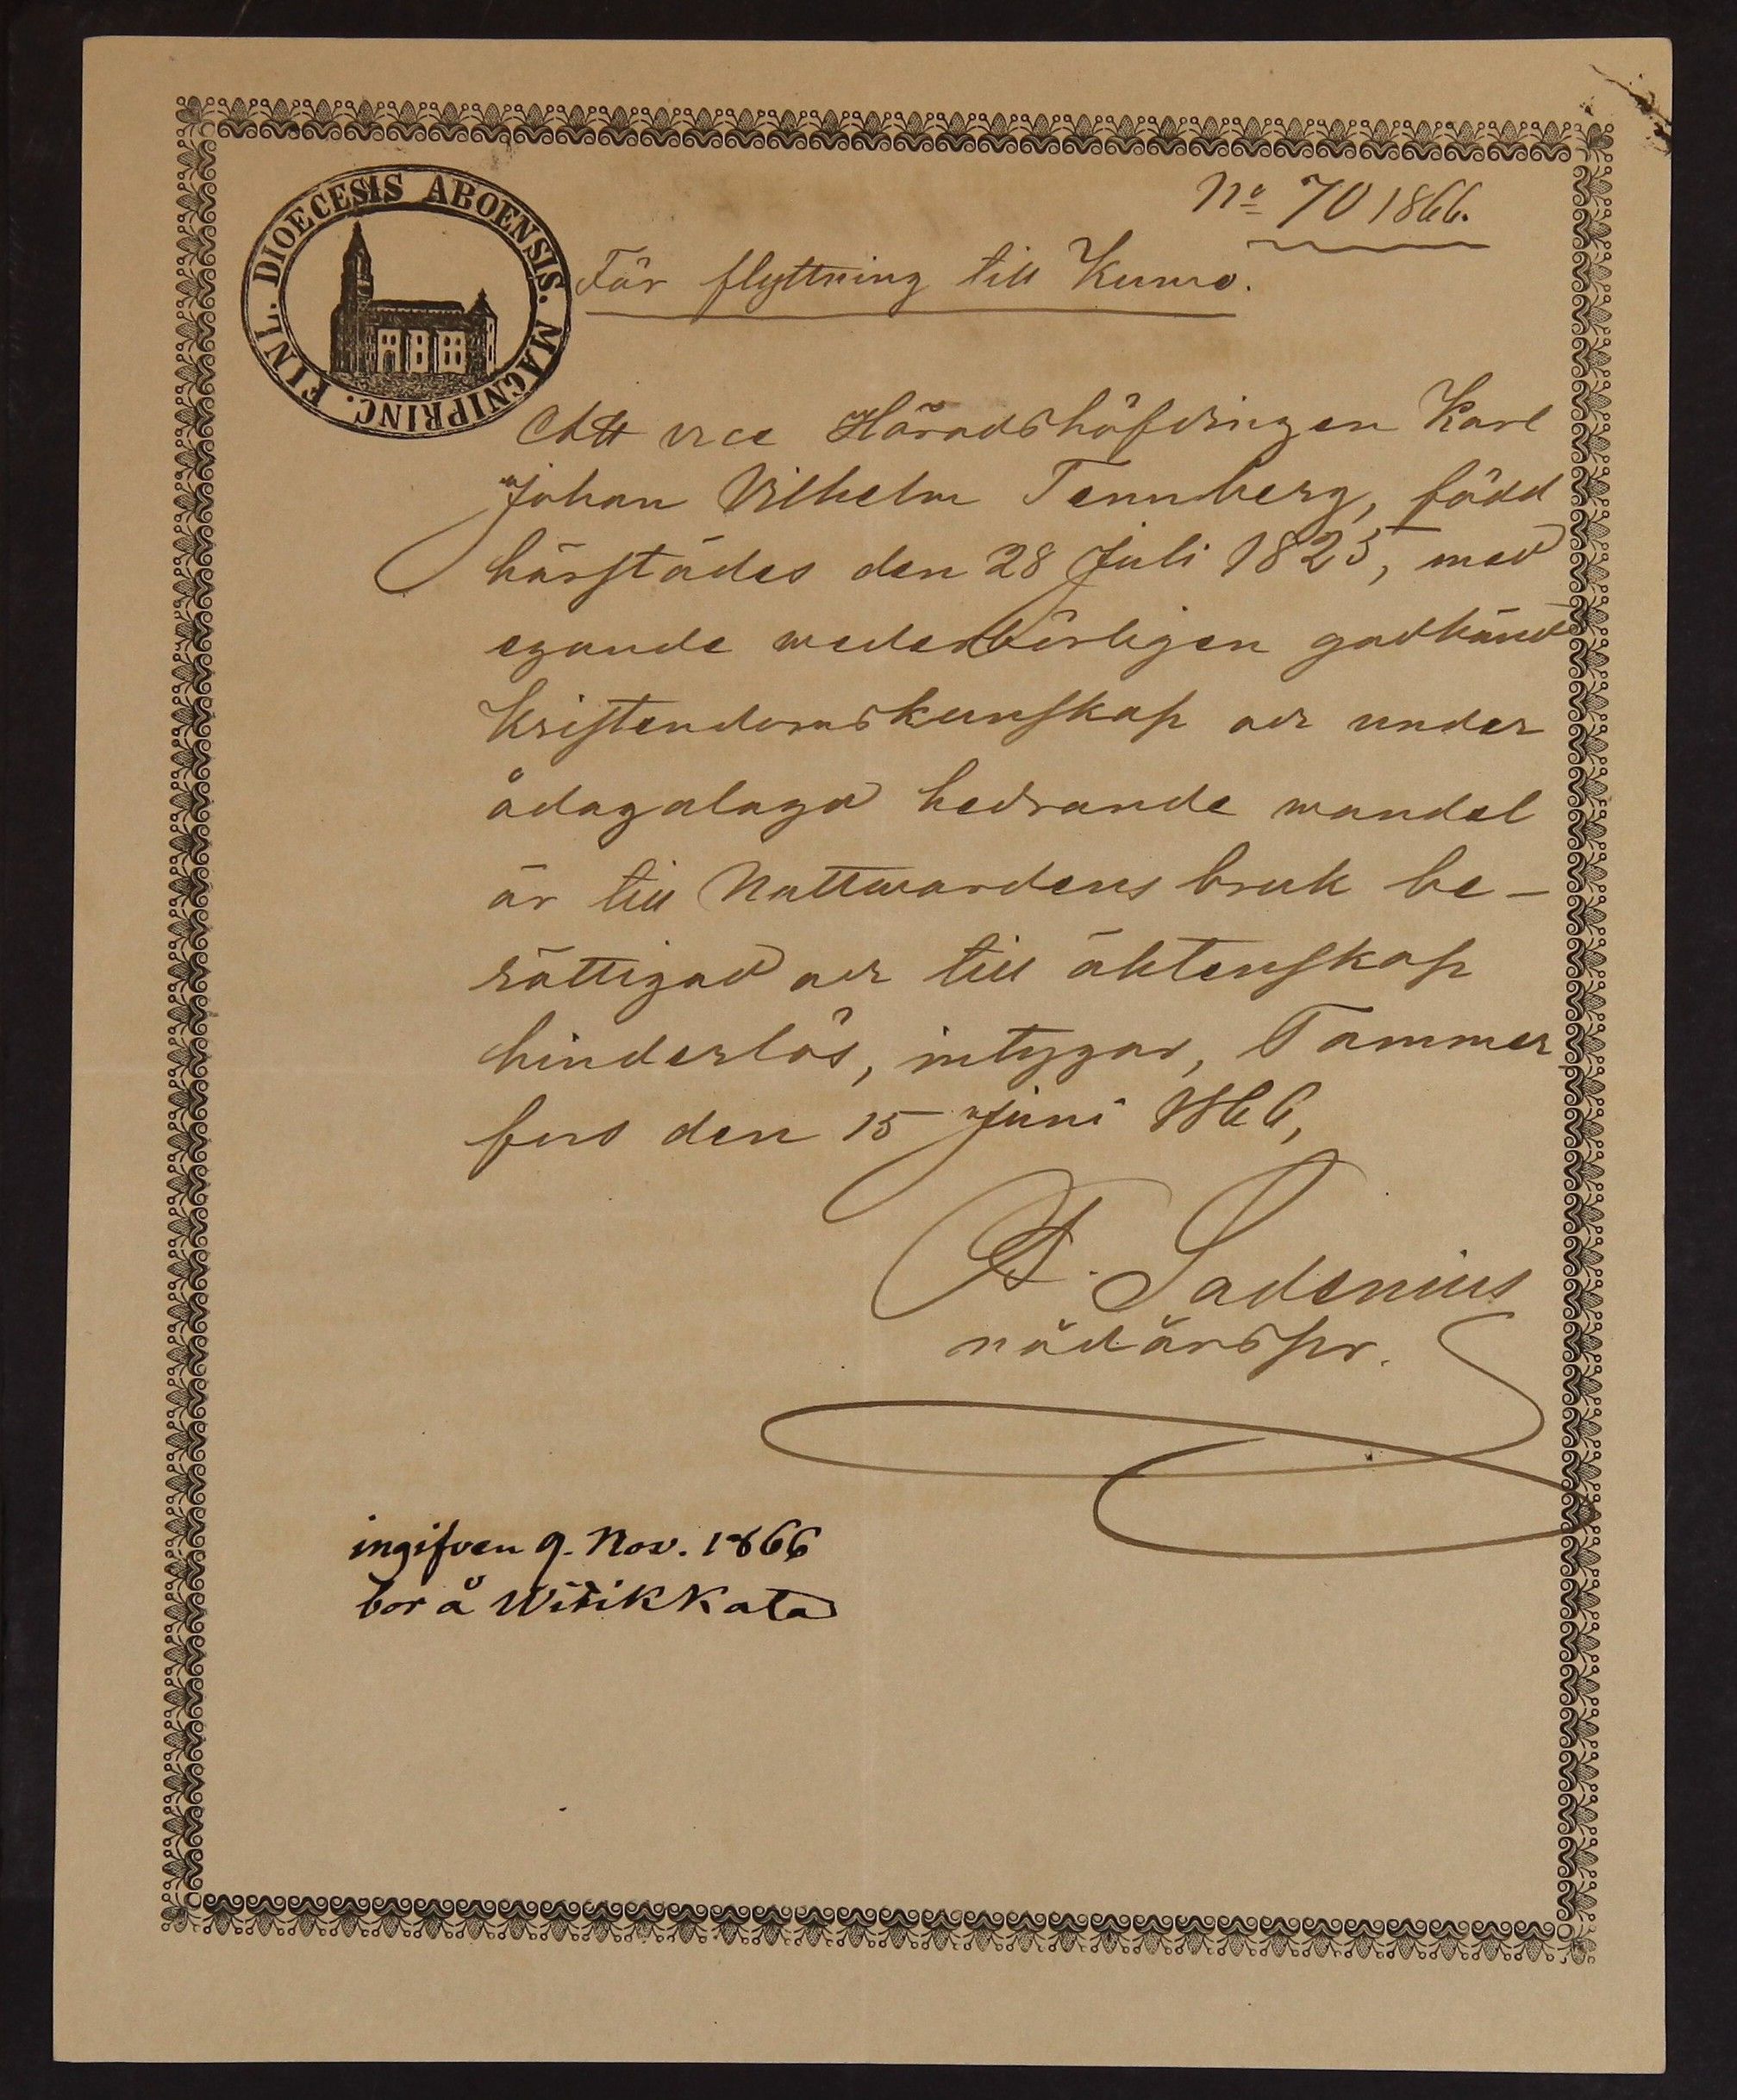 No 70 1866.
FINL. DIOECESIS ABOENSIS. MAGNIPRINC.
För flyttning till Kumo.
Att vice Häradshöfdingen Karl
Johan Vilhelm Tennberg, född
härstädes den 28 Juli 1825, med
egande wederbörligen godkänd
Kristendomskunskap och under
ådagalagd hedrande wandel
är till Nattwardens bruk be-
rättigad och till äktenskap
hinderlös, intygar, Tammer
fors den 15 Juni 1866,
F. Sadenius
nådårspr.
ingifven 9. Nov. 1866
bor å Witikkala